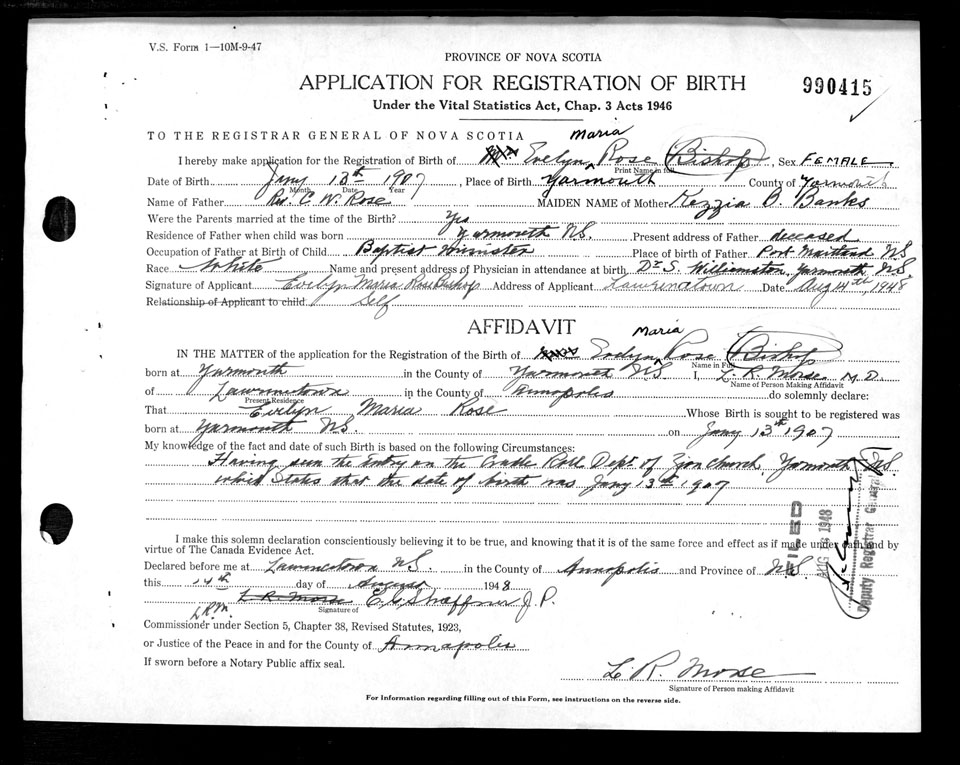 V.S. Form 1—10M-9-47
PROVINCE OF NOVA SCOTIA
APPLICATION FOR REGISTRATION OF BIRTH
990415
Under the Vital Statistics Act, Chap. 3 Acts 1946
TO THE REGISTRAR GENERAL OF NOVA SCOTIA
Maria
I hereby make application for the Registration of Birth of Evelyn Rose (Bishop), Sex FEMALE
Print Name in full
Date of Birth Jany 13th 1907, Place of Birth Yarmouth County of Yarmouth
Month Date Year
Name of Father Rev. C. W. Rose MAIDEN NAME of Mother Kezzia B. Banks
Were the Parents married at the time of the Birth? Yes
Residence of Father when child was born Yarmouth NS. Present address of Father deceased
Occupation of Father at Birth of Child Baptist Minister Place of birth of Father Port Maitland NS
Race White Name and present address of Physician in attendance at birth Dr S. Williamston, Yarmouth NS.
Signature of Applicant Evelyn Maria Rose Bishop Address of Applicant Lawrencetown Date Aug 14th, 1948
Relationship of Applicant to child Self
AFFIDAVIT
Maria
IN THE MATTER of the application for the Registration of the Birth of Evelyn Rose (Bishop)
Name in Full
born at Yarmouth in the County of Yarmouth NS. I, L. R. Morse M.D.
Name of Person Making Affidavit
of Lawrencetown in the County of Annapolis do solemnly declare:
Present Residence
That Evelyn Maria Rose Whose Birth is sought to be registered was
born at Yarmouth NS. on Jany 13th 1907
My knowledge of the fact and date of such Birth is based on the following Circumstances:
Having seen the Entry on the Cradle Roll Dept. of Zion Church, Yarmouth NS.
which States that the date of birth was Jany 13th 1907
I make this solemn declaration conscientiously believing it to be true, and knowing that it is of the same force and effect as if made under oath and by
virtue of The Canada Evidence Act.
Declared before me at Lawrencetown NS. in the County of Annapolis and Province of NS.
this 14th day of August 1948
L. R. Morse E. C. Shaffner J. P.
Signature of
L.R.M.
Commissioner under Section 5, Chapter 38, Revised Statutes, 1923,
or Justice of the Peace in and for the County of Annapolis
If sworn before a Notary Public affix seal.
L. R. Morse
Signature of Person making Affidavit
For Information regarding filling out of this Form, see instructions on the reverse side.
FILED
Deputy Registrar General